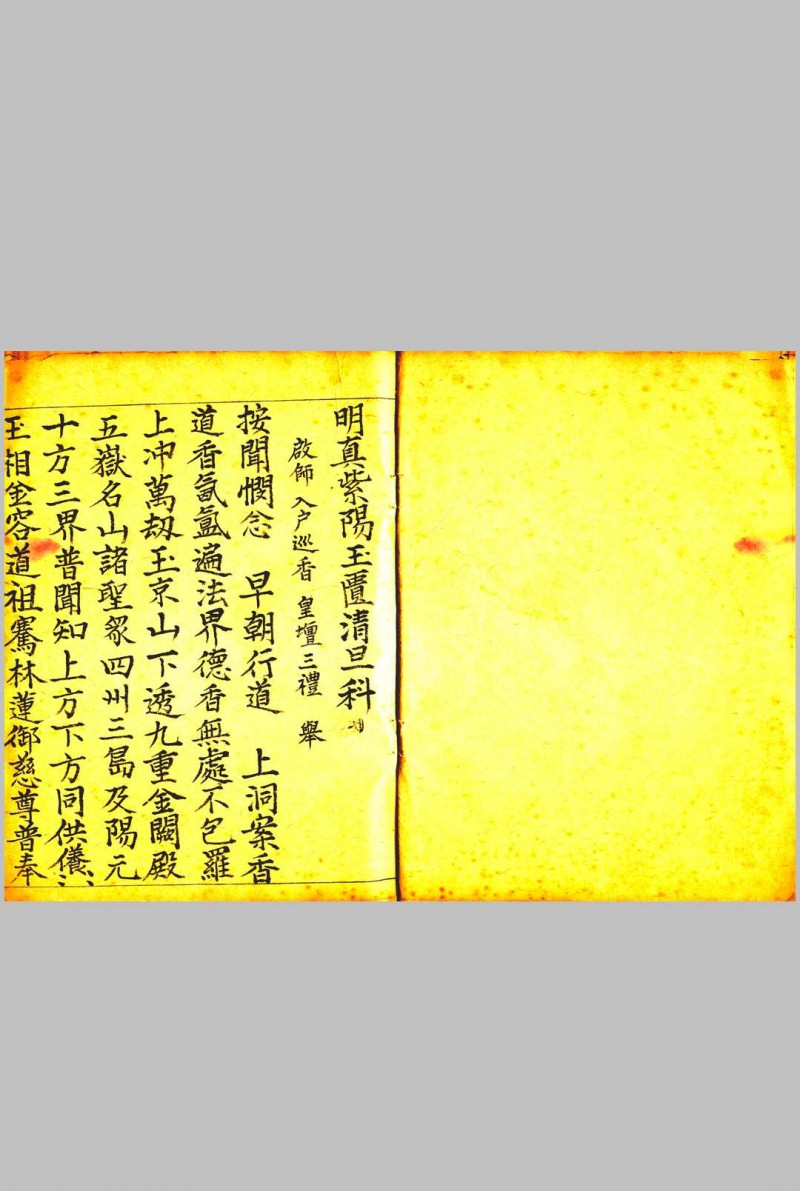 明真紫陽玉匱清旦科
啟師 入户巡香 皇壇三禮 舉
按聞憫念 早朝行道 上洞案香
道香氤氳遍法界德香無處不包羅
上冲萬劫玉京山下透九重金闕殿
五嶽名山諸聖衆四州三島及陽元
十方三界普聞知上方下方同供養
玉相金容道祖騫林蓮御慈尊普奉